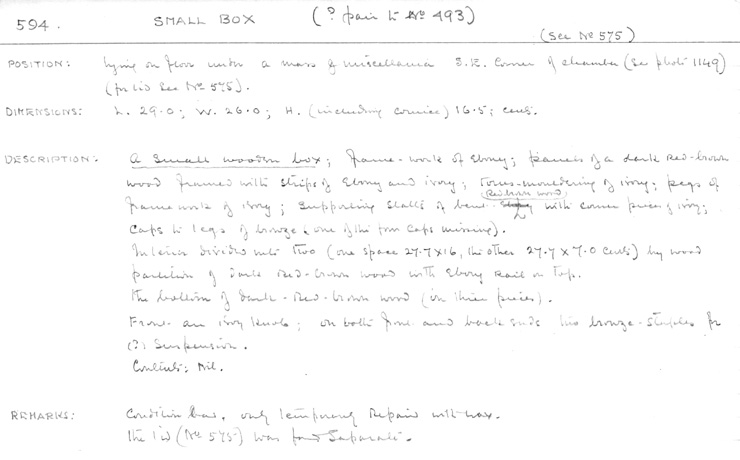 594.
SMALL BOX (? pair to No 493)
(See No 575)
POSITION: Lying on floor under a mass of miscellanea S.E. Corner of chamber (See photo 1149)
(for lid See No 575).
DIMENSIONS: L. 29.0; W. 26.0; H. (including cornice) 16.5; cents.
DESCRIPTION: A small wooden box; frame-work of Ebony; panels of a dark red-brown
wood framed with strips of Ebony and ivory; torus-mouldering of ivory; pegs of
frame work of ivory; supporting of bent red brown wood with corner pieces of ivory;
Caps to legs of bronze (one of the four caps missing).
Interior divided into two (one space 27.7 x 16, the other 27.7 x 7.0 cents) by wood
partition of dark red-brown wood with Ebony rail on top.
The bottom of dark-red-brown wood (in three pieces).
Front an ivory knob; on both front and back ends two bronze-staples for
(?) Suspension.
Contents: Nil.
REMARKS: Condition bad, only temporary repair with wax.
The lid (No 575) was found separate.